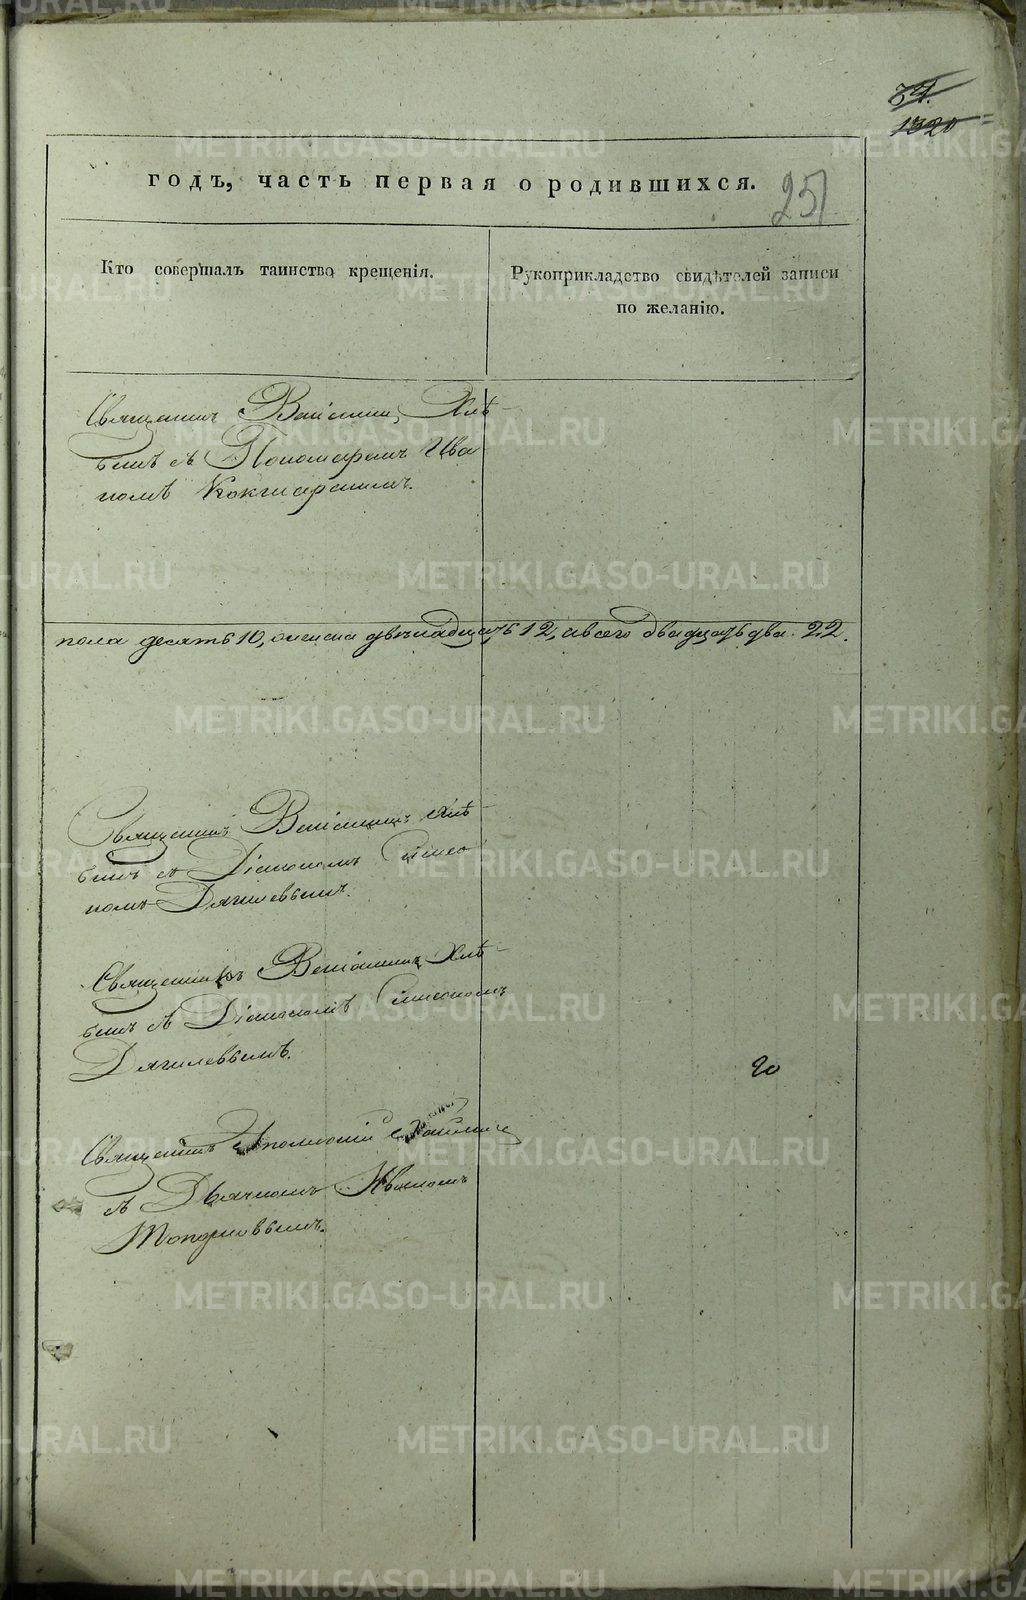 34.
1320
годъ, часть первая о родившихся.
251
Кто совершалъ таинство крещенія.
Рукоприкладство свидѣтелей записи
по желанію.
Священникъ Веніаминъ Хлѣ-
бинъ съ Пономаремъ Ива
номъ Кокшарскимъ.
пола десять 10, женска двѣнадцать 12, а всего двадцать два. 22.
Священникъ Веніаминъ Хлѣ-
бинъ съ Діакономъ Симео
номъ Дягилевымъ.
Священникъ Веніаминъ Хлѣ-
бинъ съ Діакономъ Симеономъ
Дягилевымъ.
20
Священникъ Аполлоній
съ Дьячкомъ Иваномъ
Топорковымъ.
METRIKI.GASO-URAL.RU